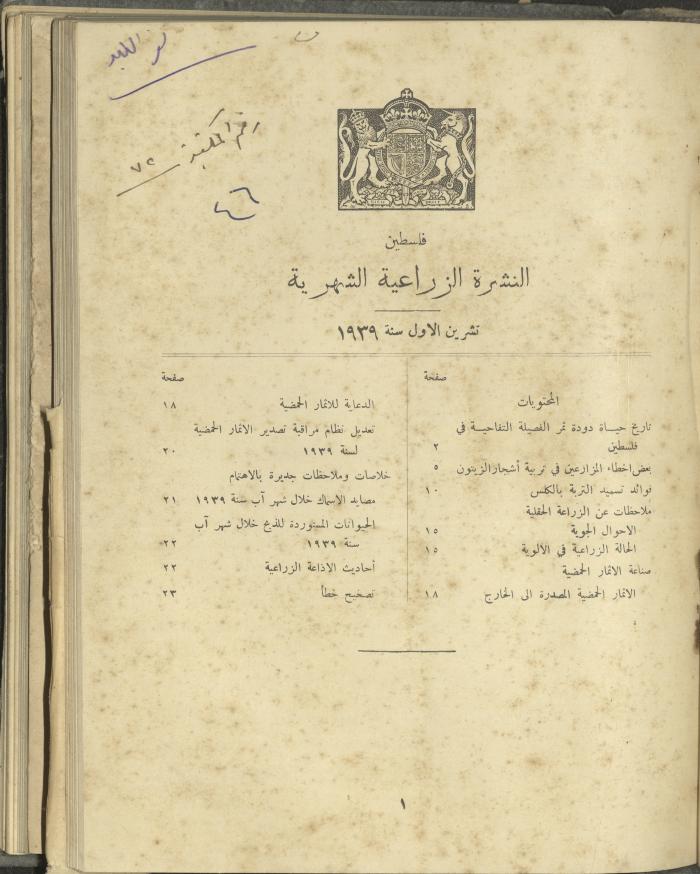 رقم المكتبة ٧٢
٤٦
فلسطين
النشرة الزراعية الشهرية
تشرين الاول سنة ١٩٣٩
صفحة
المحتويات
تاريخ حيــاة دودة ثمر الفصيلة التفاحيــة في
فلسطين ٢
بعض اخطاء المزارعين في تربية أشجار الزيتون ٥
فوائد تسميد التربة بالكلس ١٠
ملاحظات عن الزراعة الحقلية
الاحوال الجوية ١٥
الحالة الزراعية في الالوية ١٥
صناعة الاثمار الحمضية
الاثمار الحمضية المصدرة الى الخارج ١٨
صفحة
الدعاية للاثمار الحمضية ١٨
تعديل نظام مراقبة تصدير الاثمار الحمضية
لسنة ١٩٣٩ ٢٠
خلاصات وملاحظات جديرة بالاهتمام
مصايد الاسماك خلال شهر آب سنة ١٩٣٩ ٢١
الحيوانات المستوردة للذبح خلال شهر آب
سنة ١٩٣٩ ٢٢
أحاديث الاذاعة الزراعية ٢٢
تصحيح خطأ ٢٣
١